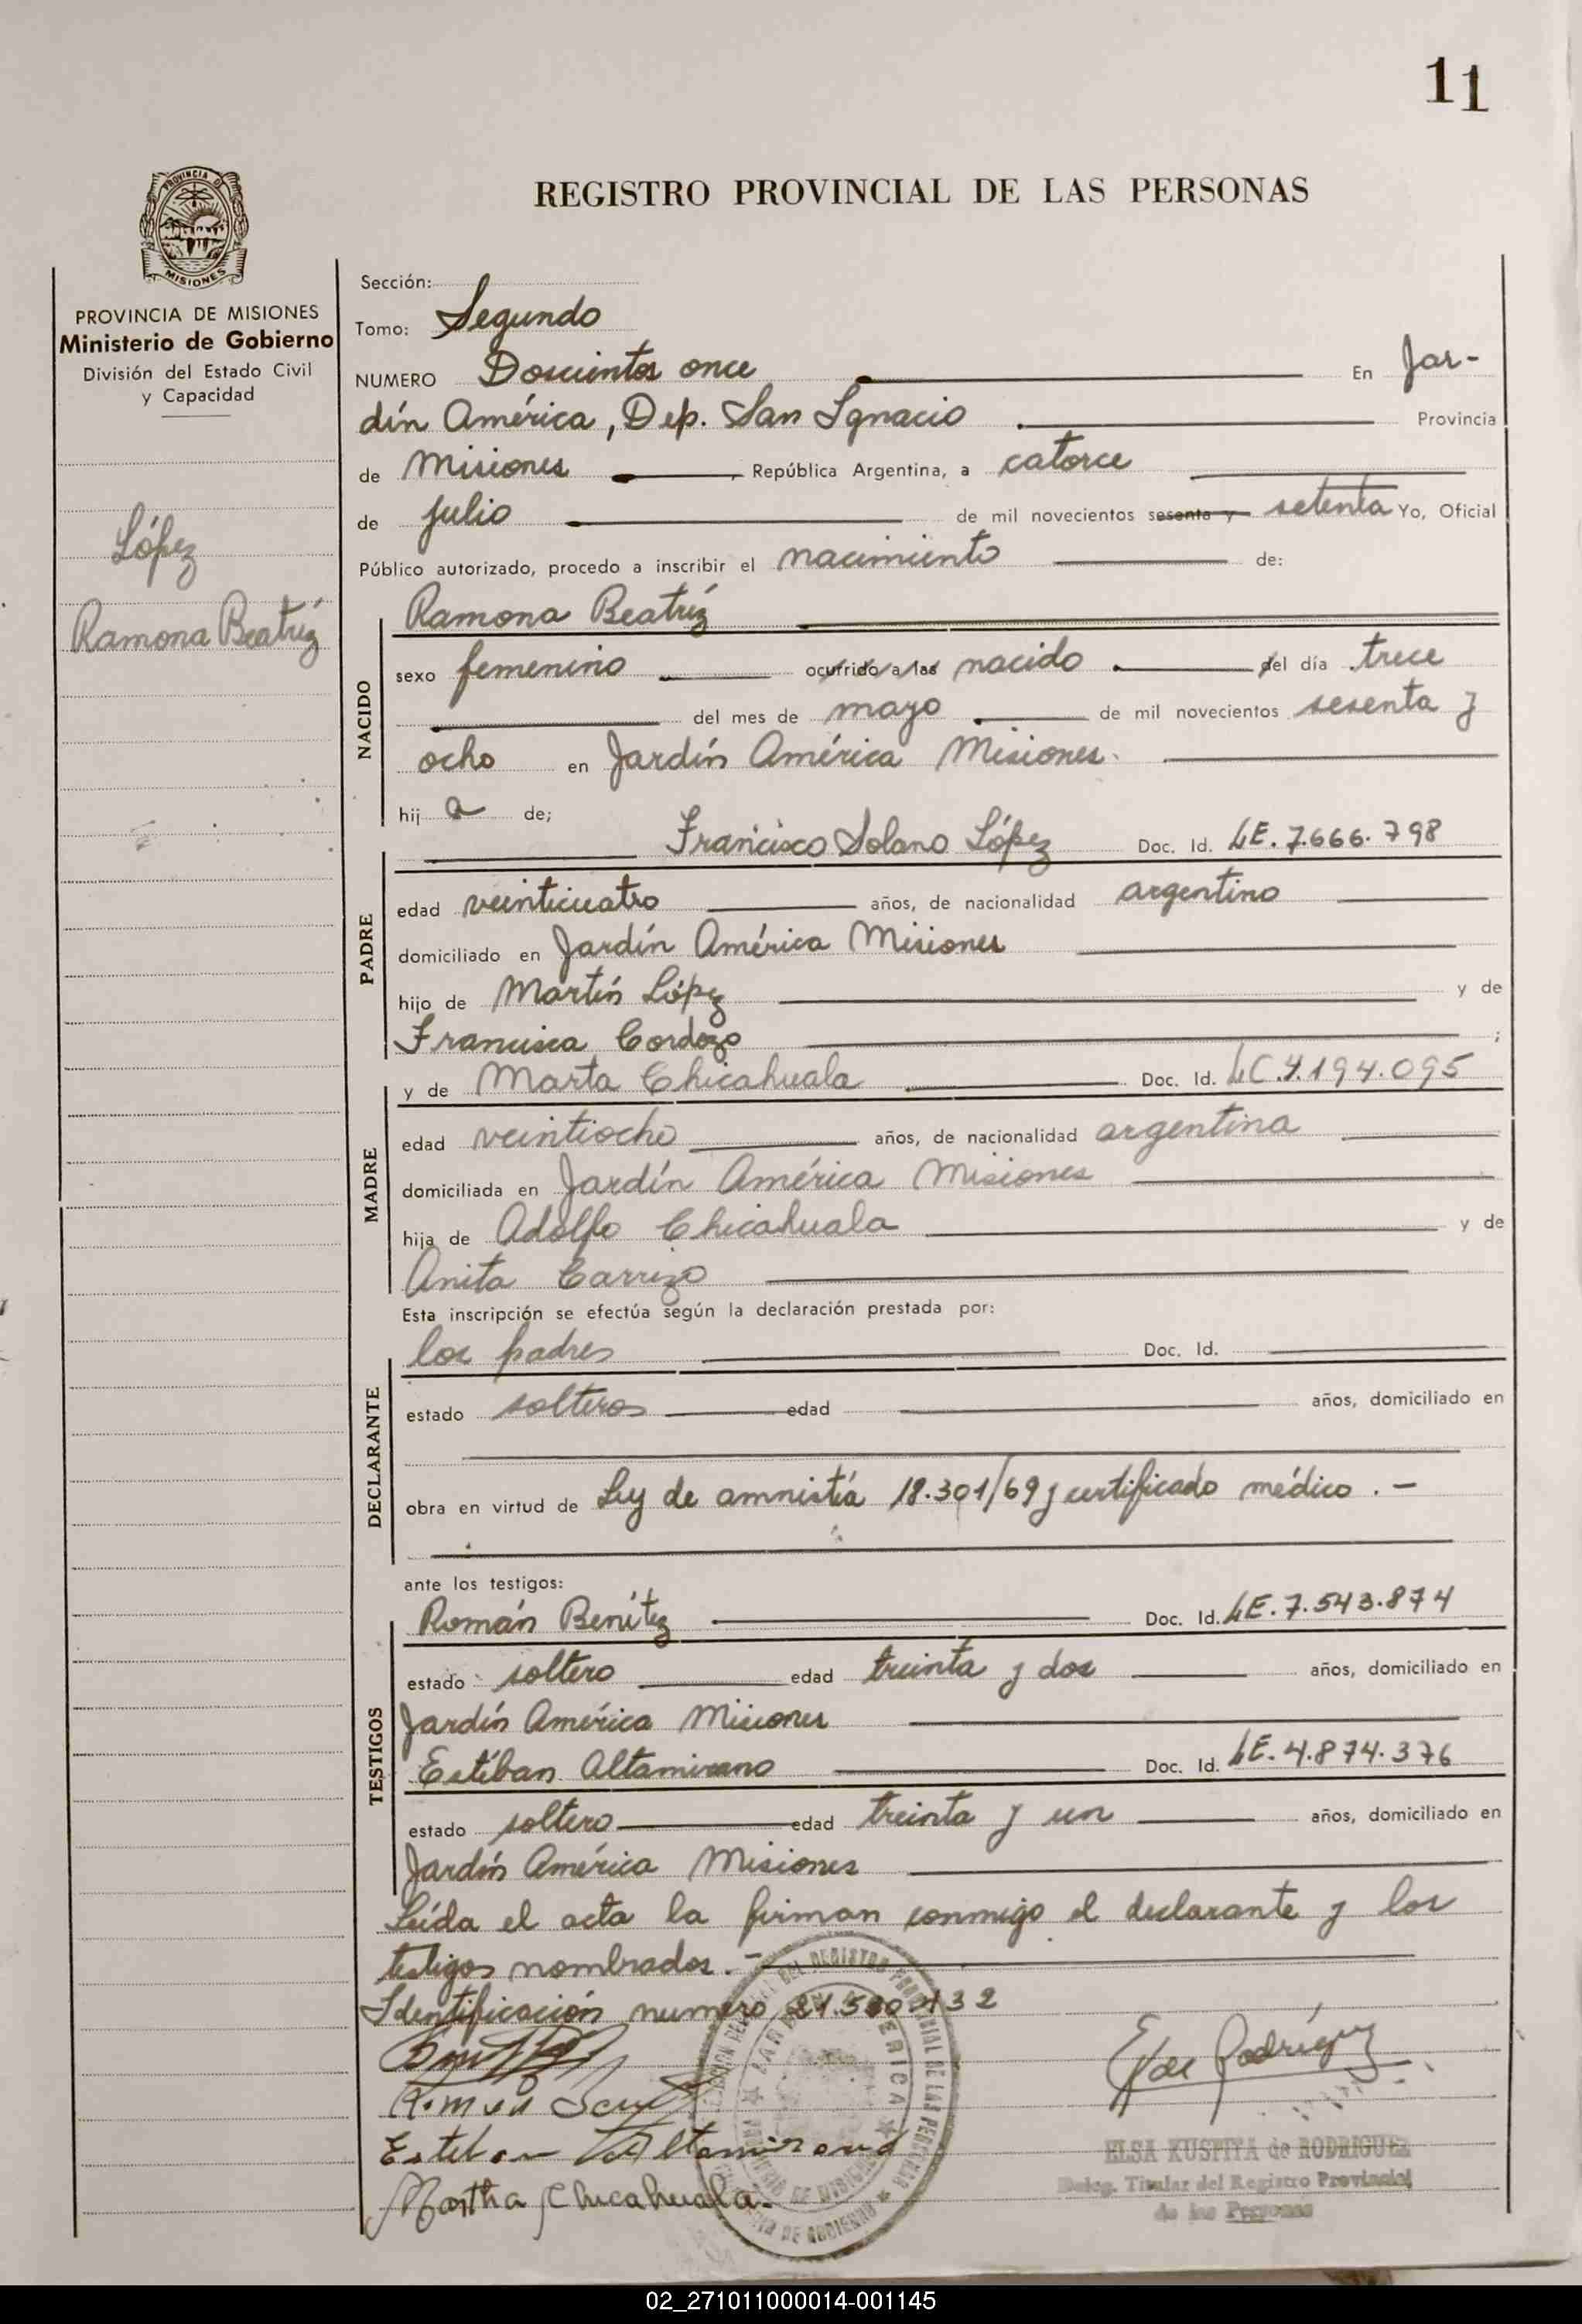 11
REGISTRO PROVINCIAL DE LAS PERSONAS
PROVINCIA DE
MISIONES
PROVINCIA DE MISIONES
Ministerio de Gobierno
División del Estado Civil
y Capacidad
López
Ramona Beatríz
Sección:
Tomo: Segundo
NUMERO Doscientos once En Jar-
dín América, Dep. San Ignacio Provincia
de Misiones República Argentina, a catorce
de julio de mil novecientos sesenta y setenta Yo, Oficial
Público autorizado, procedo a inscribir el nacimiento de:
NACIDO
Ramona Beatríz
sexo femenino ocurrido a las nacido del día trece
del mes de mayo de mil novecientos sesenta y
ocho en Jardín América Misiones.
hij a de;
PADRE
Francisco Solano López Doc. Id. LE. 7.666.798
edad veinticuatro años, de nacionalidad argentino
domiciliado en Jardín América Misiones
hijo de Martín López y de
Francisca Cordozo ;
MADRE
y de Marta Chicahuala Doc. Id. LC.4.194.095
edad veintiocho años, de nacionalidad argentina
domiciliada en Jardín América Misiones
hija de Adolfo Chicahuala y de
Anita Carrizo
Esta inscripción se efectúa según la declaración prestada por:
DECLARANTE
los padres Doc. Id.
estado solteros edad años, domiciliado en
obra en virtud de Ley de amnistía 18.301/69 y certificado médico . -
ante los testigos:
TESTIGOS
Román Benítez Doc. Id. LE. 7.543.874
estado soltero edad treinta y dos años, domiciliado en
Jardín América Misiones
Estéban Altamirano Doc. Id. LE. 4.874.376
estado soltero edad treinta y un años, domiciliado en
Jardín América Misiones
Leída el acta la firman conmigo el declarante y los
testigos nombrados. -
Identificación numero 132
Esteban Altamirano
Martha Chicahuala.
Rodríguez
ELSA KUSPITA de RODRIGUEZ
Deleg. Titular del Registro Provincial
de las Personas
02_271011000014-001145